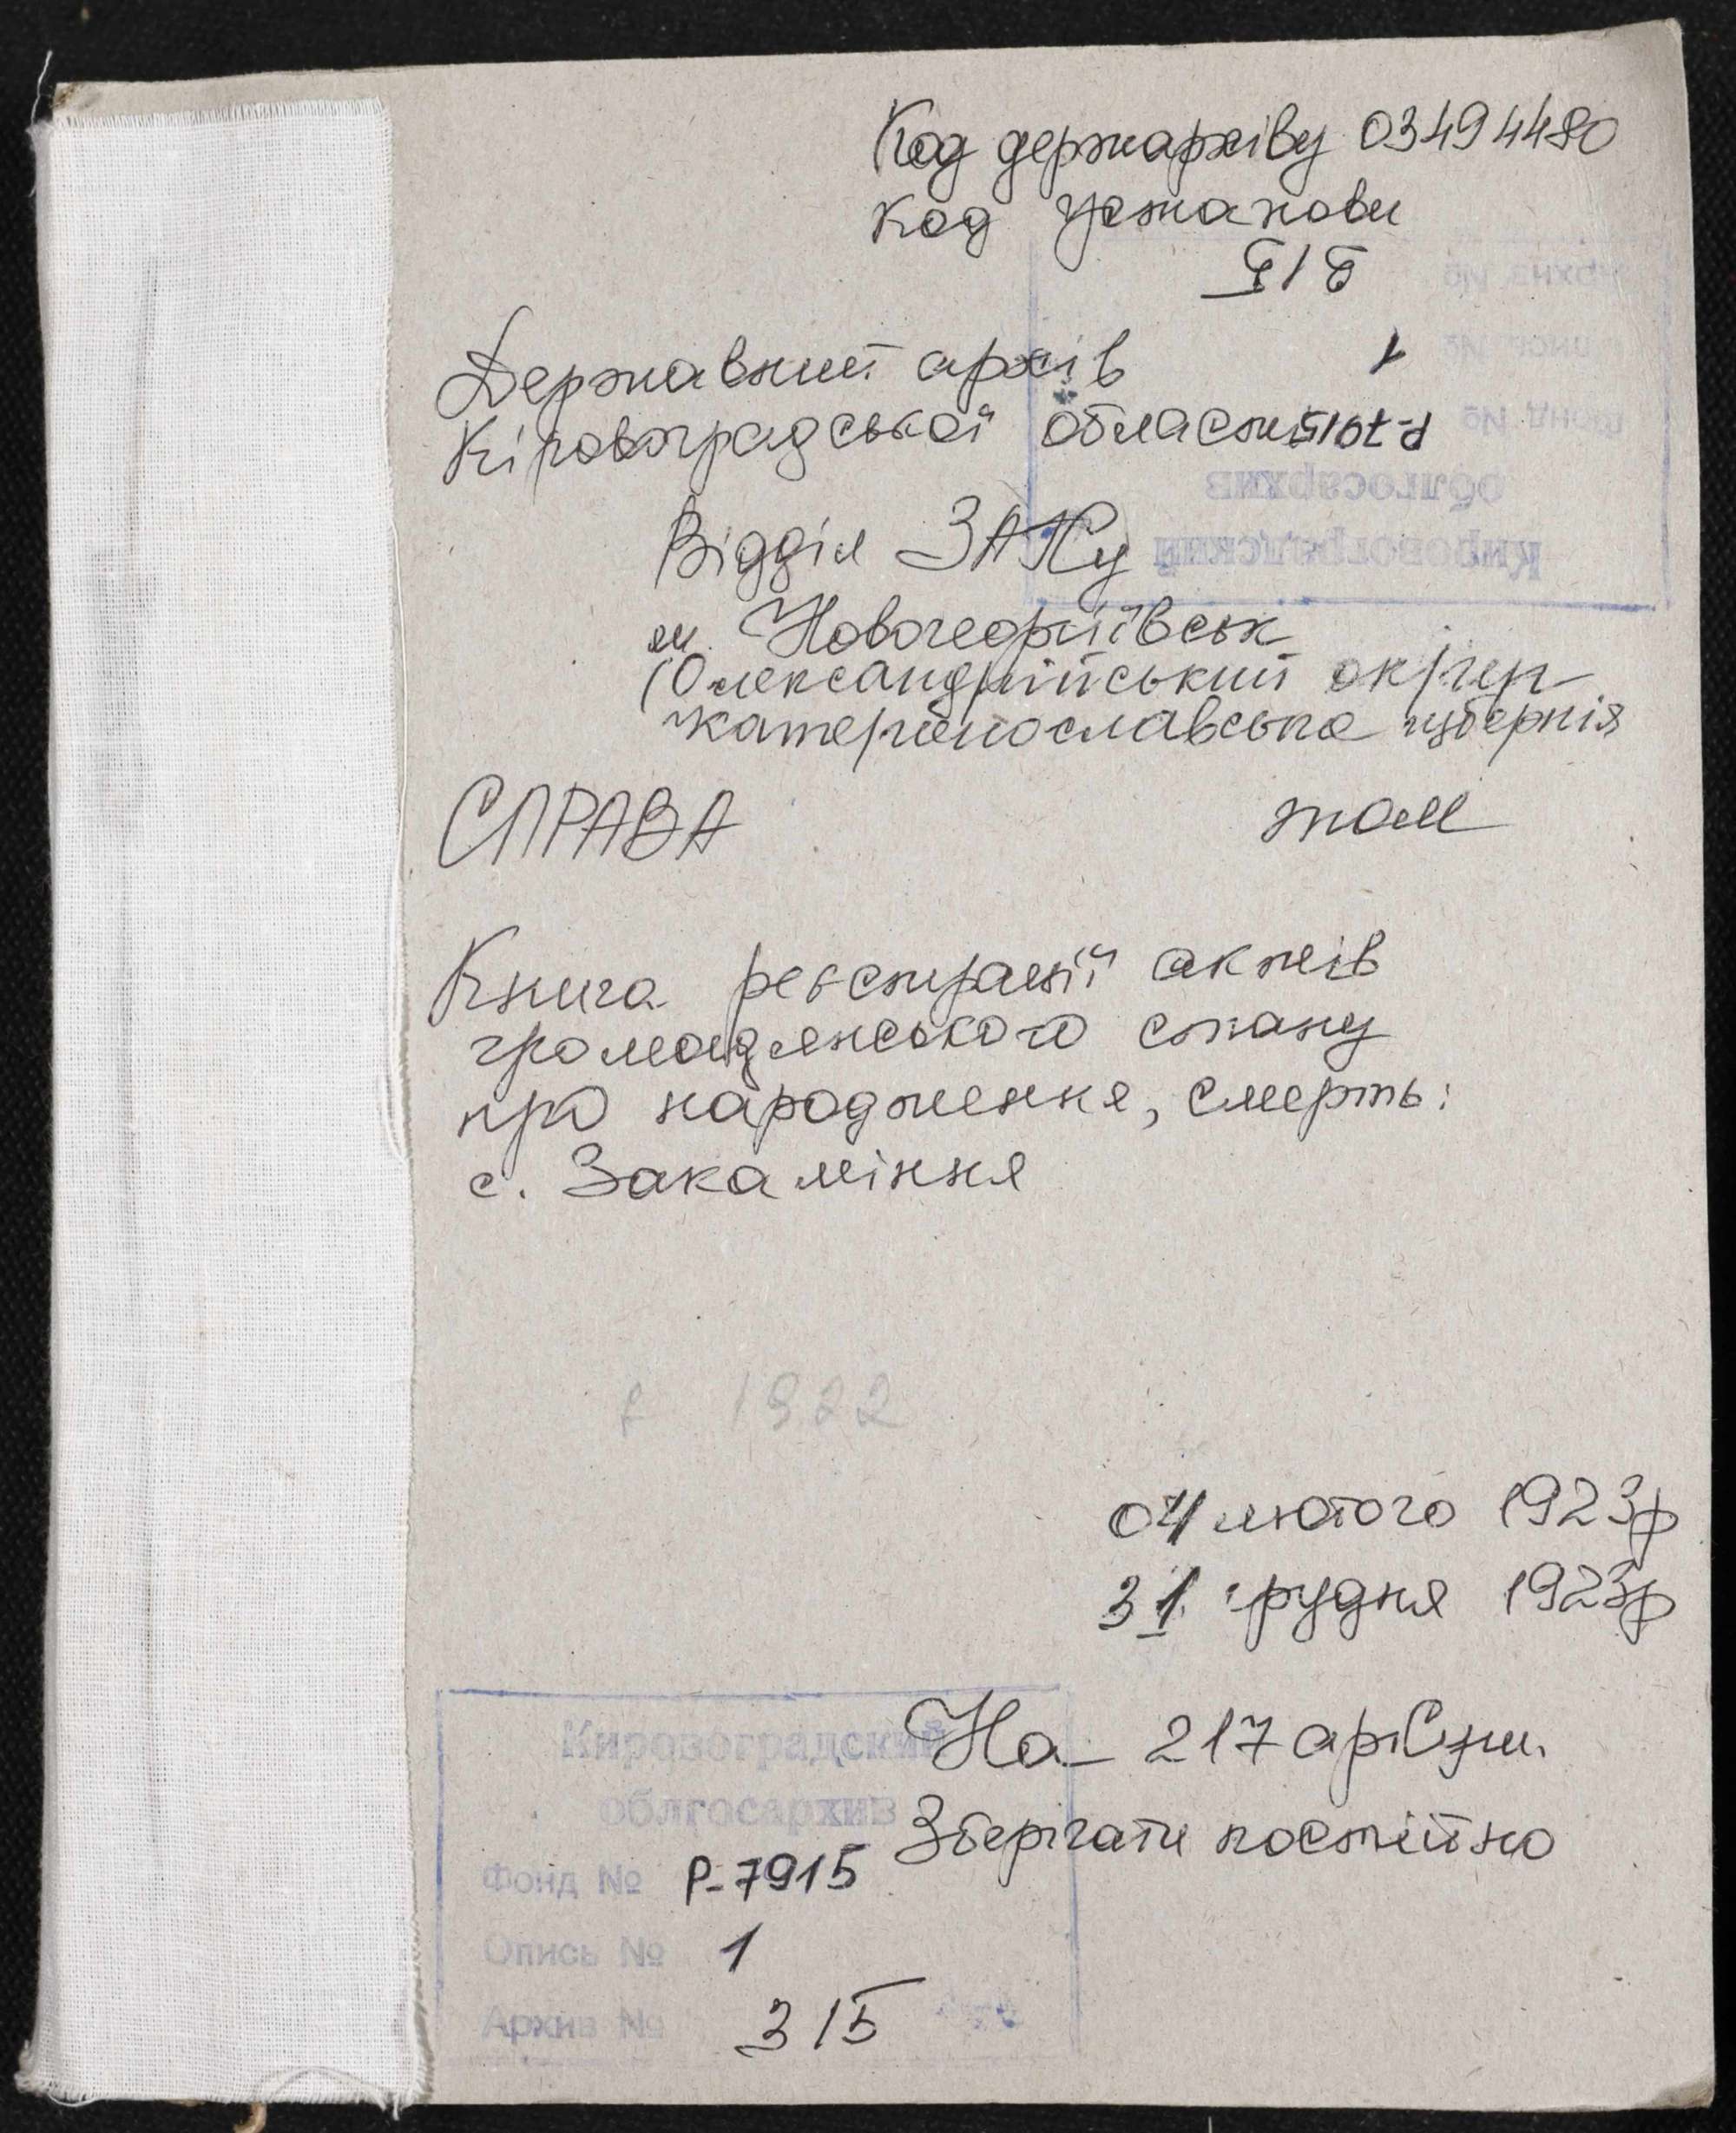 Код держархіву 03494480
Код установи
Державний архів
Кіровоградської області
Р-7915
1
315
Кировоградский
облгосархив
Фонд №
Опись №
Архив №
Відділ ЗАГСу
м. Новогеоргіївськ
(Олександрійський округ
Катеринославська губернія
СПРАВА том
Книга реєстрації актів
громадянського стану
про народження, смерть:
с. Закаміння
1922
04 лютого 1923р
31 грудня 1923р
На 217 аркуш.
Зберігати постійно
Кировоградский
облгосархив
Фонд № Р-7915
Опись № 1
Архив № 315